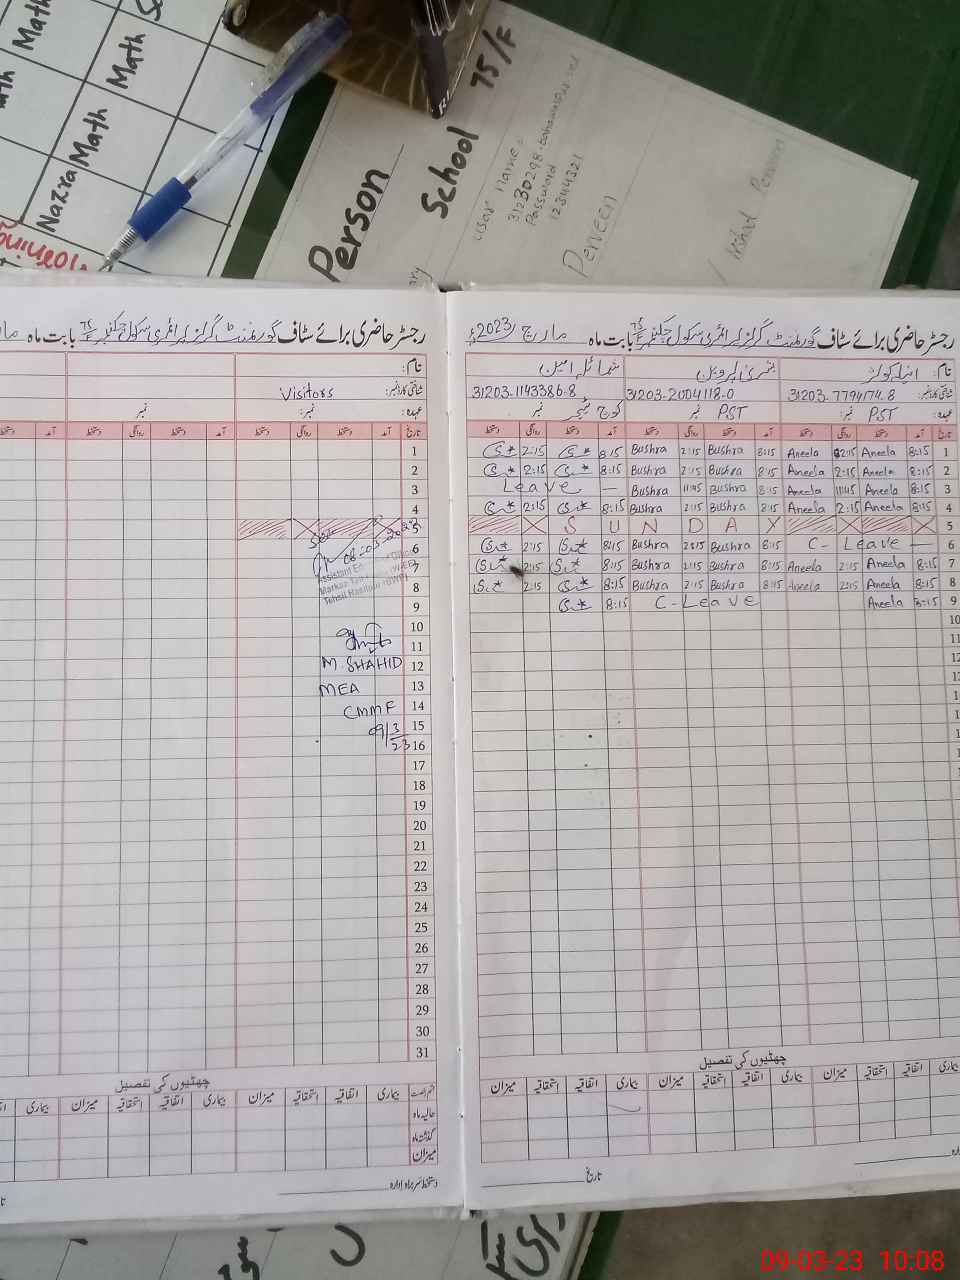 Math
Math
Math
Math
Nazra
75/F
School
Person
User Name:
31230298.bahawalpur
Password
12344321
Perveen
Irshad Perveen
رجسٹر حاضری برائے سٹاف گورنمنٹ گرلز پرائمری سکول چک نمبر 75/F بابت ماہ
نام:
شناختی کارڈ نمبر: Visitors
عہدہ: نمبر: نمبر
تاریخ آمد دستخط روانگی دستخط آمد دستخط روانگی دستخط
1
2
3
4
5
6
7
8
9
10
11
12
13
14
15
16
17
18
19
20
21
22
23
24
25
26
27
28
29
30
31
08-03-2023
Assistant Ed
Tehsil Hasilpur (BWP)
M. SHAHID
MEA
CMMF
09/3/23
چھٹیوں کی تفصیل
قسم رخصت بیماری اتفاقیہ استحقاقیہ میزان بیماری اتفاقیہ استحقاقیہ میزان بیماری
حالیہ ماہ
گذشتہ ماہ
میزان
دستخط سربراہ ادارہ
رجسٹر حاضری برائے سٹاف گورنمنٹ گرلز پرائمری سکول چک نمبر 75/F بابت ماہ مارچ 2023ء
نام: انیلہ کوثر بشریٰ پروین شمائلہ امین
شناختی کارڈ نمبر: 31203-7794174-8 31203-2004118-0 31203-1143386-8
عہدہ: PST نمبر: PST نمبر نمبر
تاریخ آمد دستخط روانگی دستخط آمد دستخط روانگی دستخط آمد دستخط روانگی دستخط
1 8:15 Aneela 2:15 Aneela 8:15 Bushra 2:15 Bushra 8:15 2:15
2 8:15 Aneela 2:15 Aneela 8:15 Bushra 2:15 Bushra 8:15 2:15
3 8:15 Aneela 11:45 Aneela 8:15 Bushra 11:45 Bushra Leave
4 8:15 Aneela 2:15 Aneela 8:15 Bushra 2:15 Bushra 8:15 2:15
5 SUNDAY
6 C- Leave 8:15 Bushra 2:15 Bushra 8:15 2:15
7 8:15 Aneela 2:15 Aneela 8:15 Bushra 2:15 Bushra 8:15 2:15
8 8:15 Aneela 2:15 Aneela 8:15 Bushra 2:15 Bushra 8:15 2:15
9 8:15 Aneela C-Leave 8:15
10
چھٹیوں کی تفصیل
اتفاقیہ استحقاقیہ میزان بیماری اتفاقیہ استحقاقیہ میزان بیماری اتفاقیہ استحقاقیہ میزان
تاریخ
09-03-23 10:08